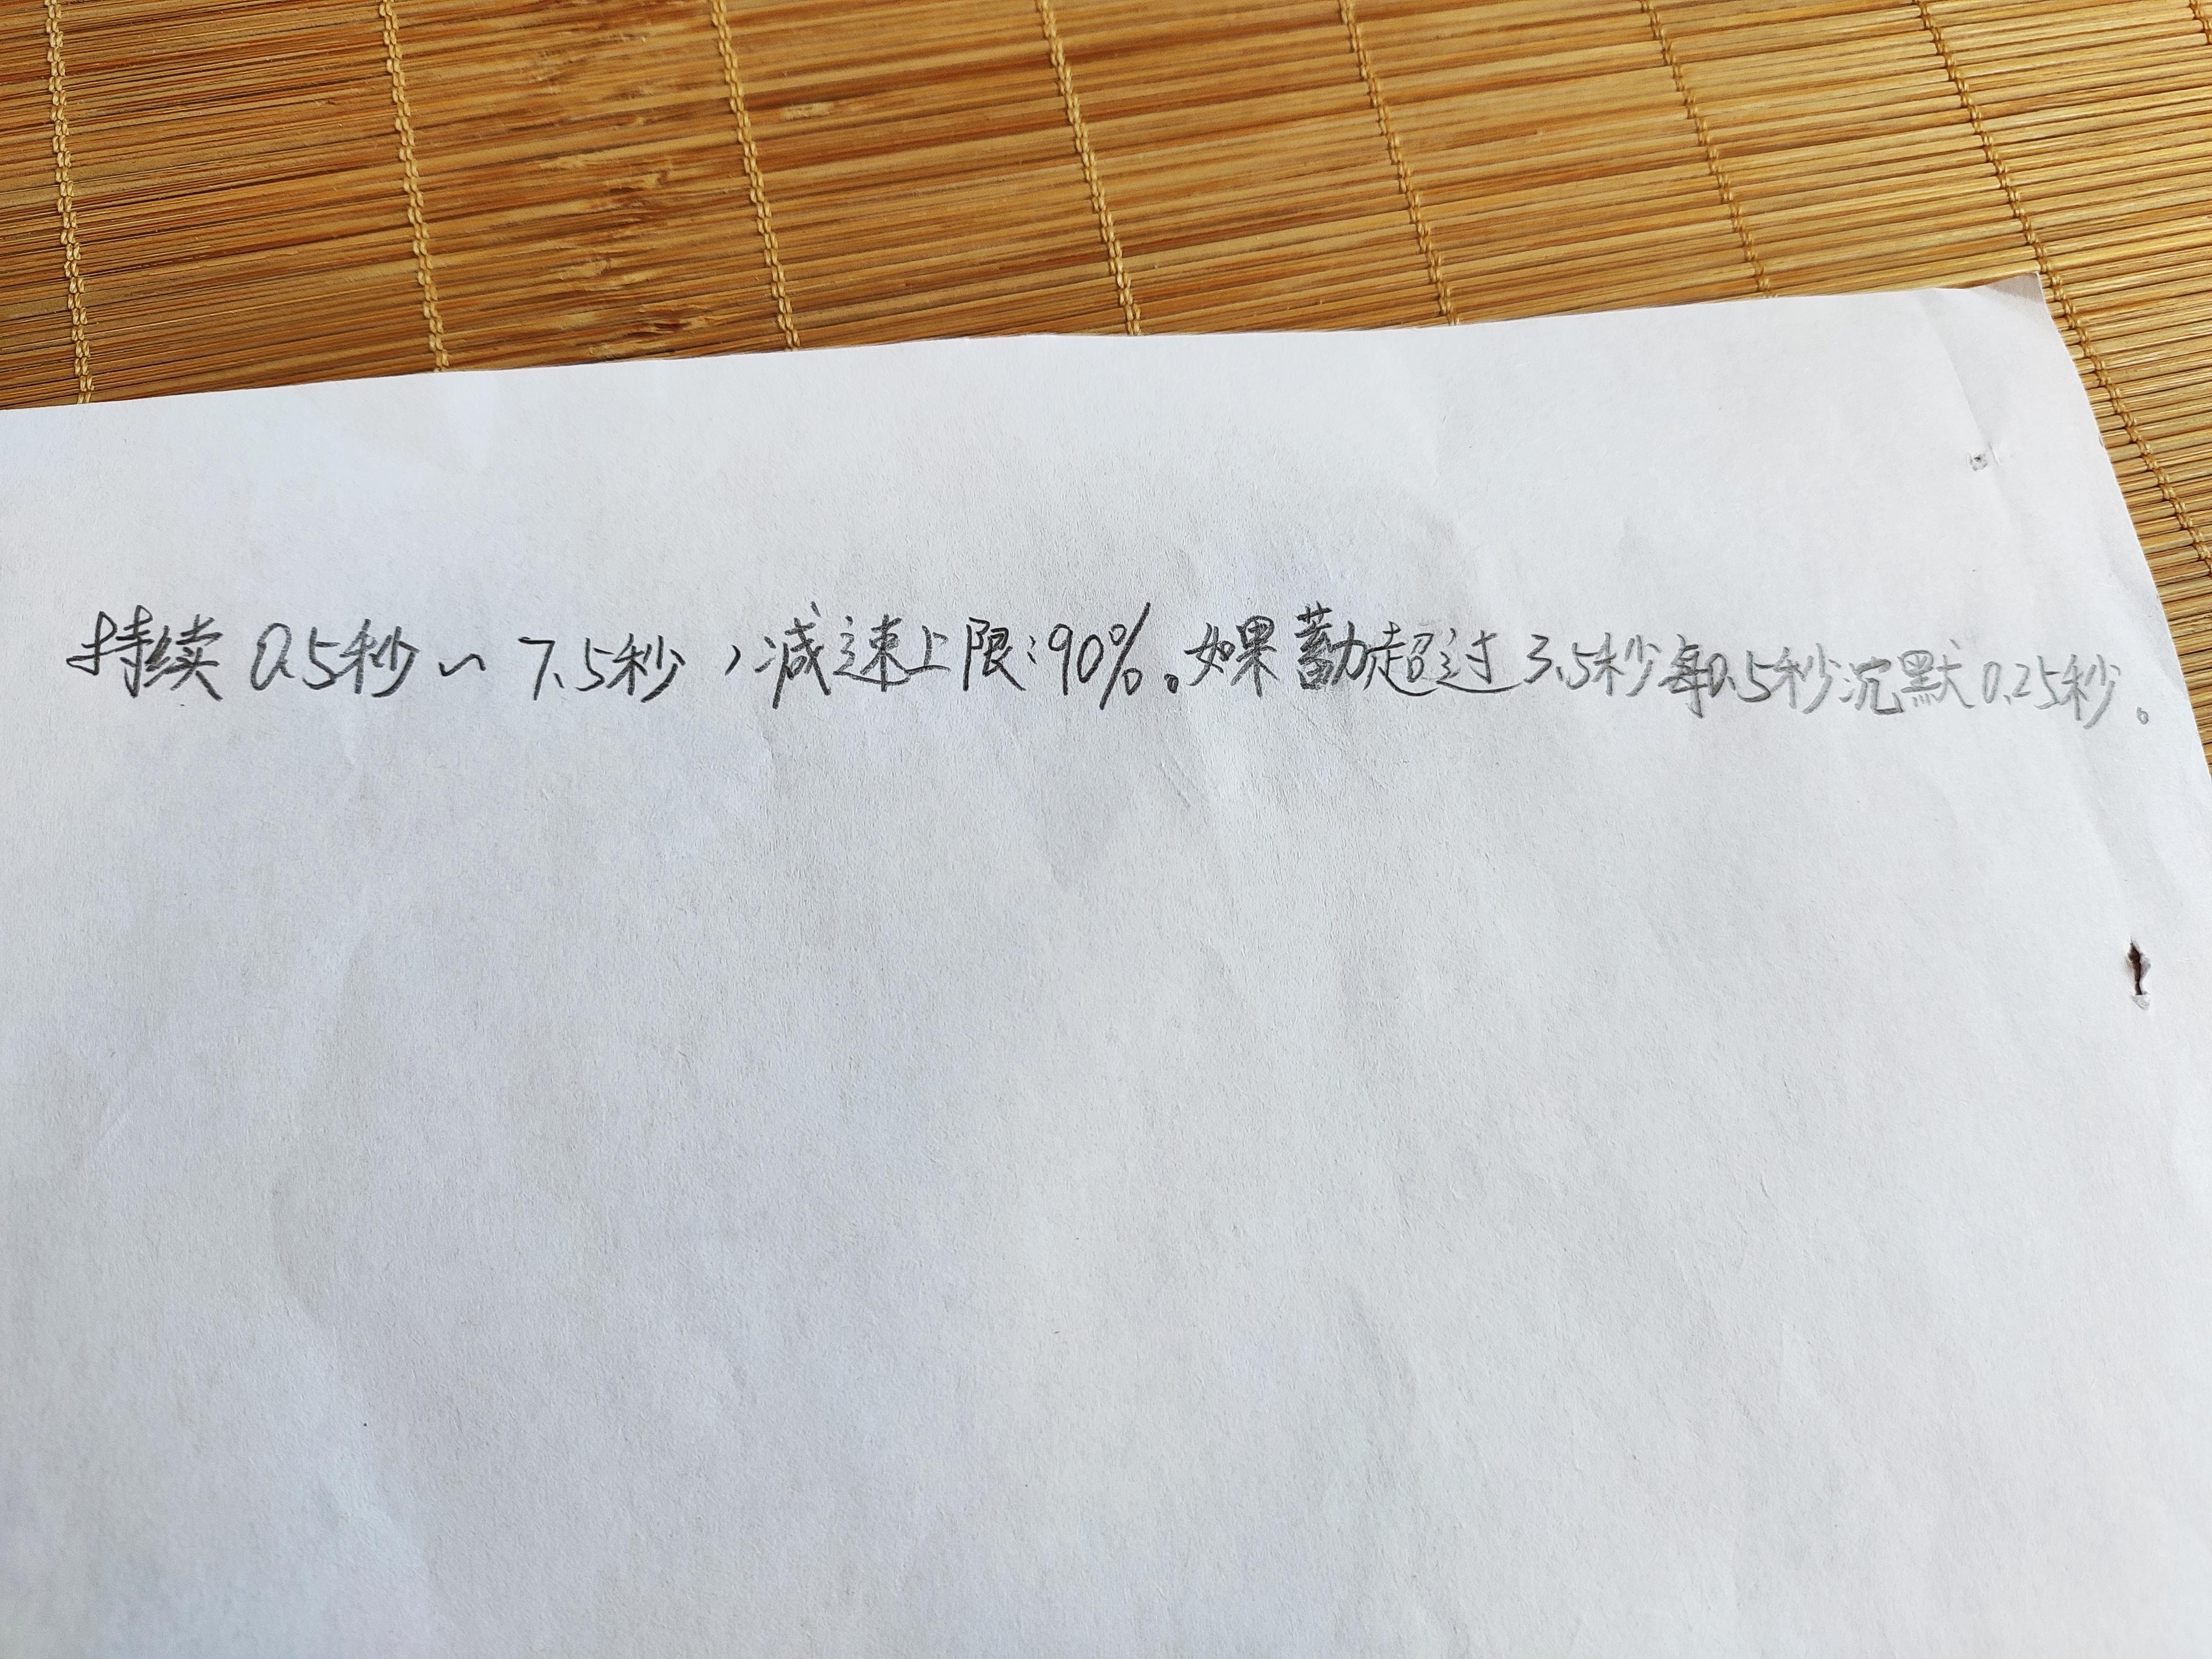 持续0.5秒~7.5秒,减速上限:90%。如果蓄力超过3.5秒每0.5秒沉默0.25秒。